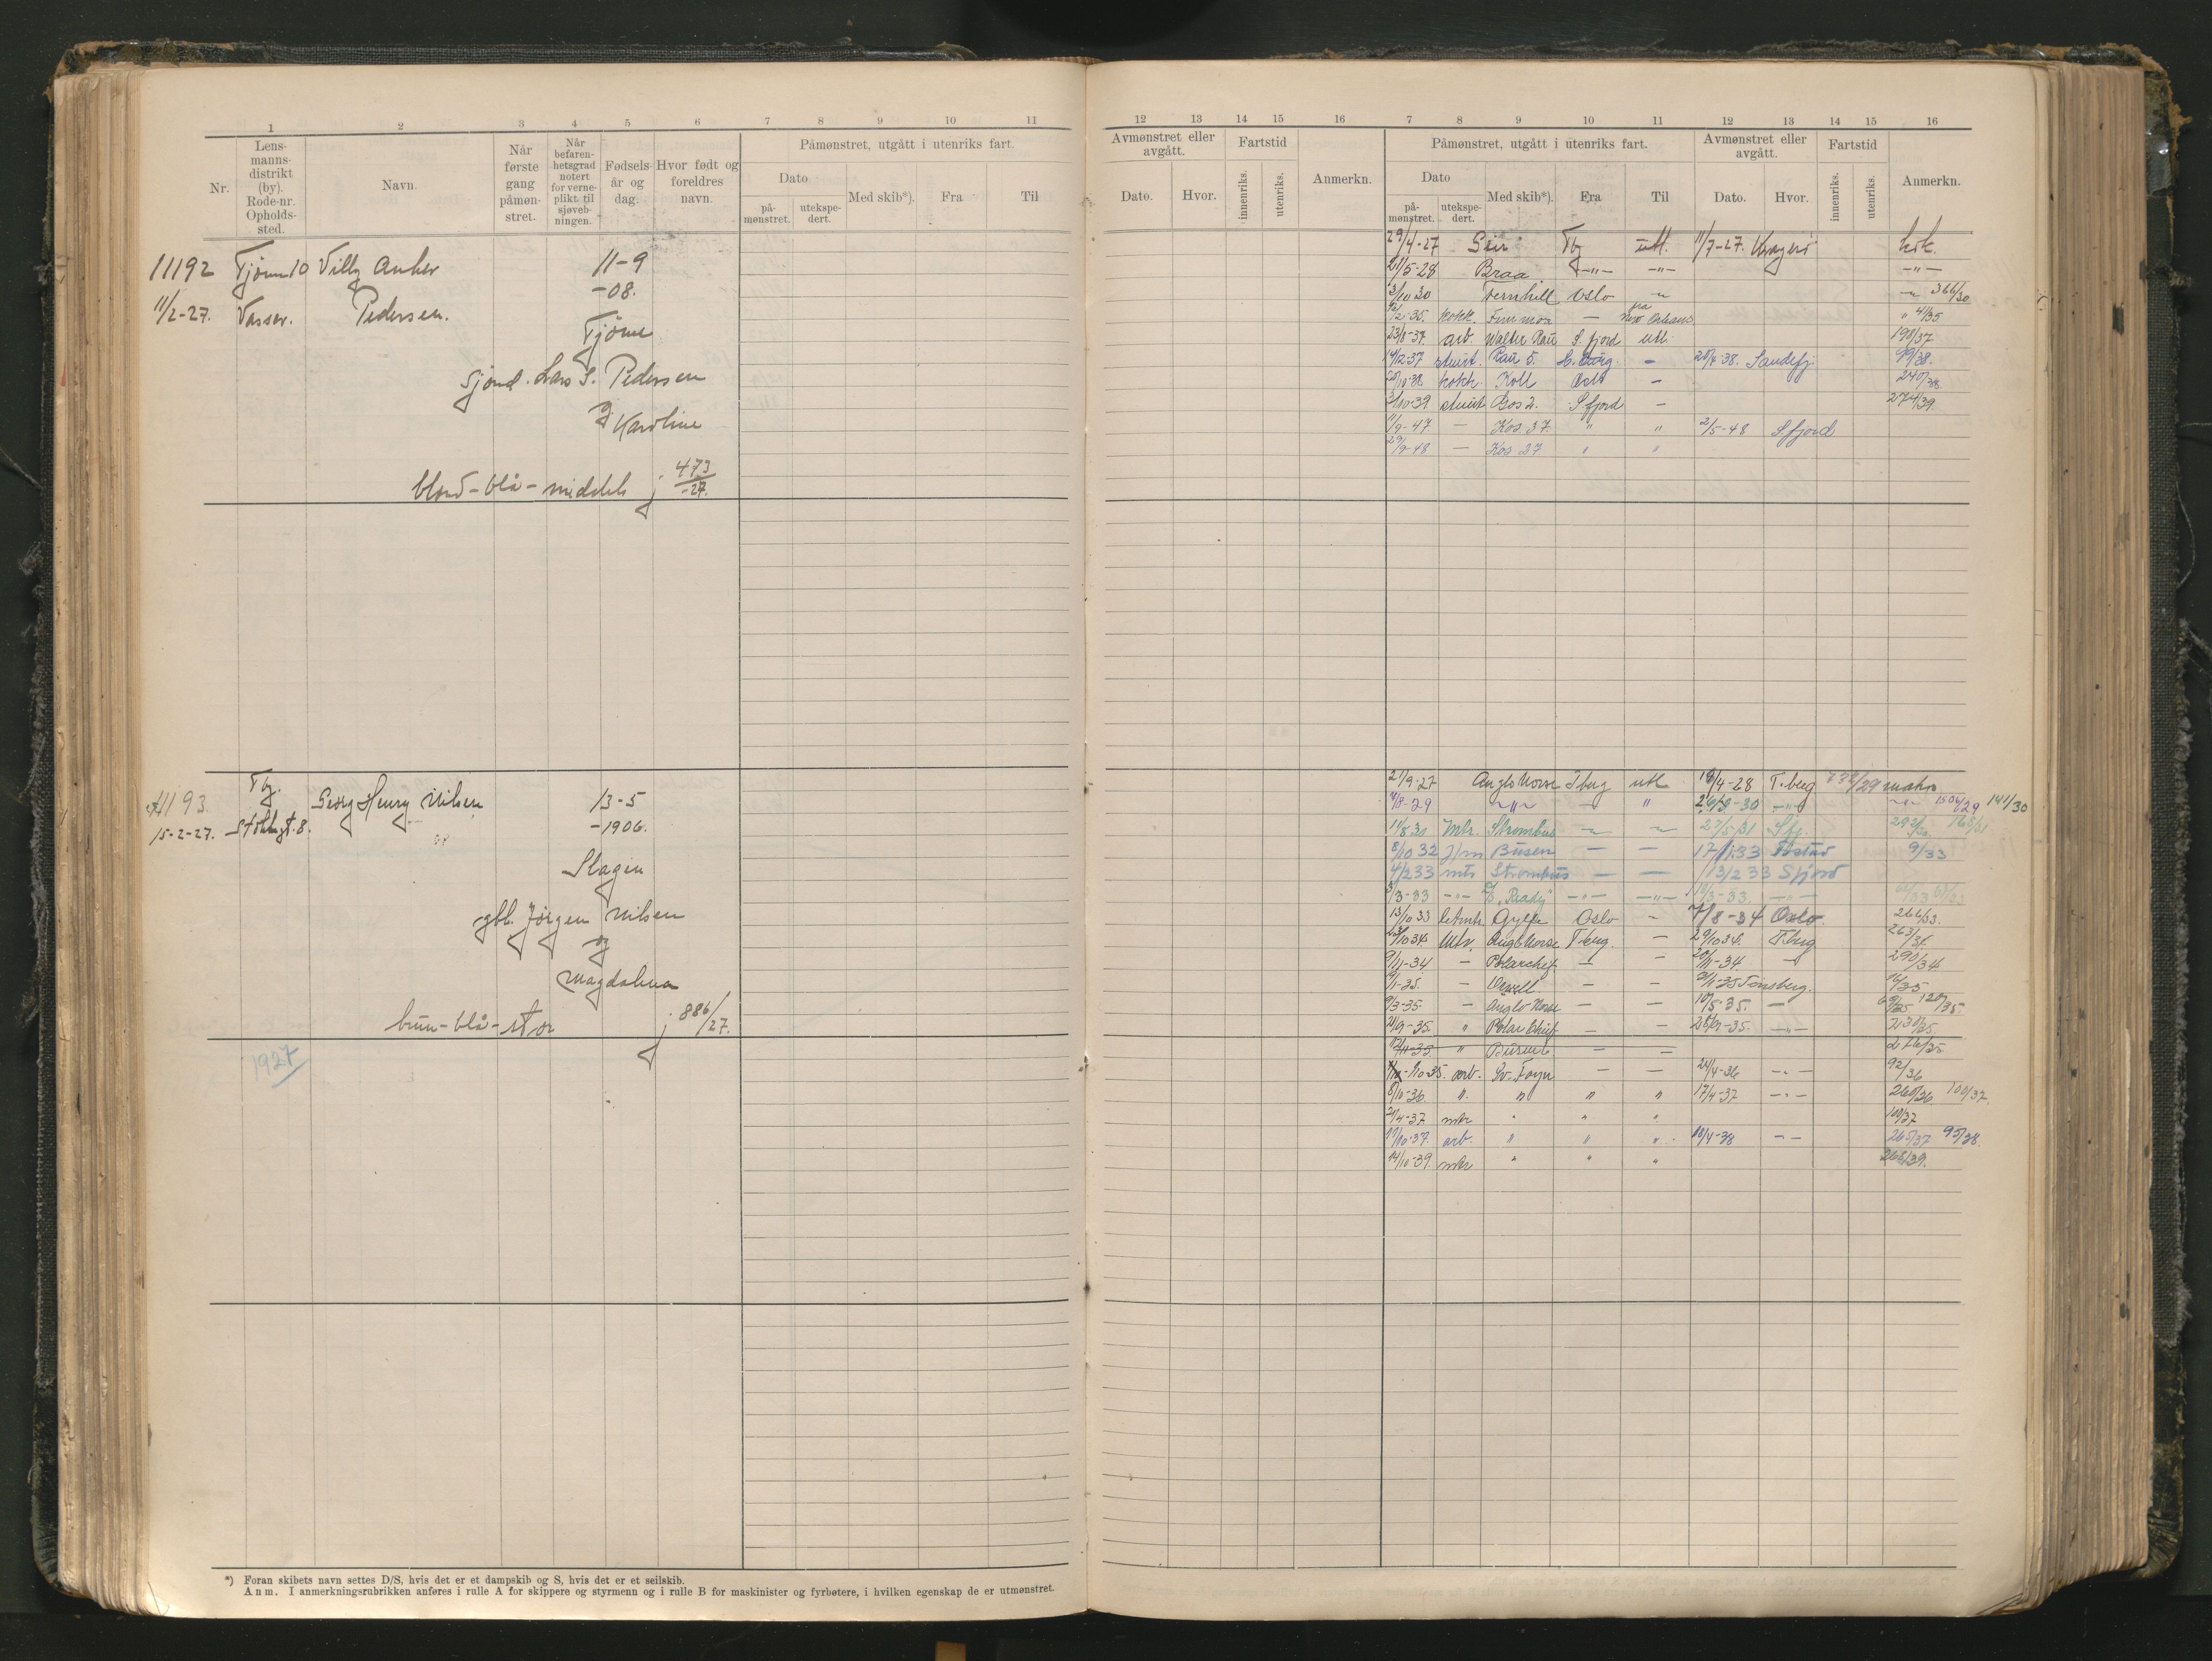 1 2 3 4 5 6 7 8 9 10 11
Nr. Lensmannsdistrikt (by). Rode-nr. Opholdssted. Navn. Når første gang påmønstret. Når befarenhetsgrad notert for verneplikt. til sjøvebningen. Fødselsår og dag. Hvor født og foreldres navn. Påmønstret, utgått i utenriks fart.
Dato Med skib*). Fra Til
påmønstret. utekspedert.
11192 Tjømø 10 Villy Anker 11-9
-08.
11/2-27. Vasser. Pedersen.
Tjøme
sjømd. Lars S. Pedersen
og
Karoline
blond-blå-middels j 473/-27.
11193. Tbg. Georg Henry Nilsen 13-5
15-2-27. Stoltenbgt. 8. -1906.
Slagen
gbl. Jørgen Nilsen
og
Magdalena
brun-blå-stor j 886/27.
1927
*) Foran skibets navn settes D/S, hvis det er et dampskib og S, hvis det er et seilskib.
Anm. I anmerkningsrubrikken anføres i rulle A for skippere og styrmenn og i rulle B for maskinister og fyrbøtere, i hvilken egenskap de er utmønstret.
12 13 14 15 16 7 8 9 10 11 12 13 14 15 16
Avmønstret eller avgått. Fartstid Anmerkn. Påmønstret, utgått i utenriks fart. Avmønstret eller avgått. Fartstid Anmerkn.
Dato. Hvor. innenriks. utenriks. Dato Med skib*). Fra Til Dato. Hvor. innenriks. utenriks.
påmønstret. utekspedert.
29/4-27 Seir Tbg utl. 11/7-27. Kragerø kok.
21/5-28 Braa -"- -"- -"-
3/10 30 Fernhill Oslo -"- -"- 366/30
12/2-35. kokk. Fernmoor - via New Orleans " 4/35
23/8-37. arb. Walter Rau S.fjord utl. 198/37
14/2-37 stuert. Rau 5. H.burg - 20/4-38. Sandefj. 99/38.
20/10-38 kokk Koll Oslo - 240/38.
3/10-39 stuert Bos 2. S.fjord - 274/39.
11/9-47. - Kos 37. " " 2/5-48 Sfjord
29/9-48 - Kos 27 " "
21/9-27 Anglo Norse T.berg utl 18/4-28 T.berg 732/29 matros
4/8-29 -"- - " 26/3-30 -"- -"- 1506/29 141/30
14/8 30 Mtr. Strombus -"- -"- 27/5/31 Sfj. 292/30. 165/31
8/10 32 J/m Busen - - 17/1 33 9/33
4/2 33 mts Strombus - - 13/2 33 Sfjord
3/3-33 -"- "Ready" -"- -"- 13/3-33. -"-
13/10 33 Gylfe Oslo - 7/8-34 Oslo. 266/33.
23/10 34. Mtr. Anglo Norse T.berg. - 29/10 34. T.berg 263/34.
9/11-34 - Polarchief - - 20/11-34 - 290/34
9/1-35. - Orwell - - 21/1-35 Tønsberg. 14/35
9/3-35. - Anglo Norse - - 10/5-35. - 69/35. 120/35.
21/9-35. " Polar Chief - - 28/9-35. -"- 230/35.
12/11-35. " Busen 6. - - 276/35.
-9/10-35. arb. Sv. Foyn - - 24/4-36 -"- 92/36
8/10-36. " " " " 17/4-37 -"- 260/36. 100/37.
21/4-37 mtr " " " 100/37
17/10-37. arb. " " " 18/4-38 -- 265/37 95/38.
14/10-39. mtr " " " 268/39.